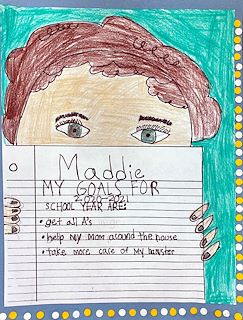 Maddie
MY GOALS FOR
2020-2021
SCHOOL YEAR ARE:
• get all A's
• help my mom around the house
• take more care of my hamster